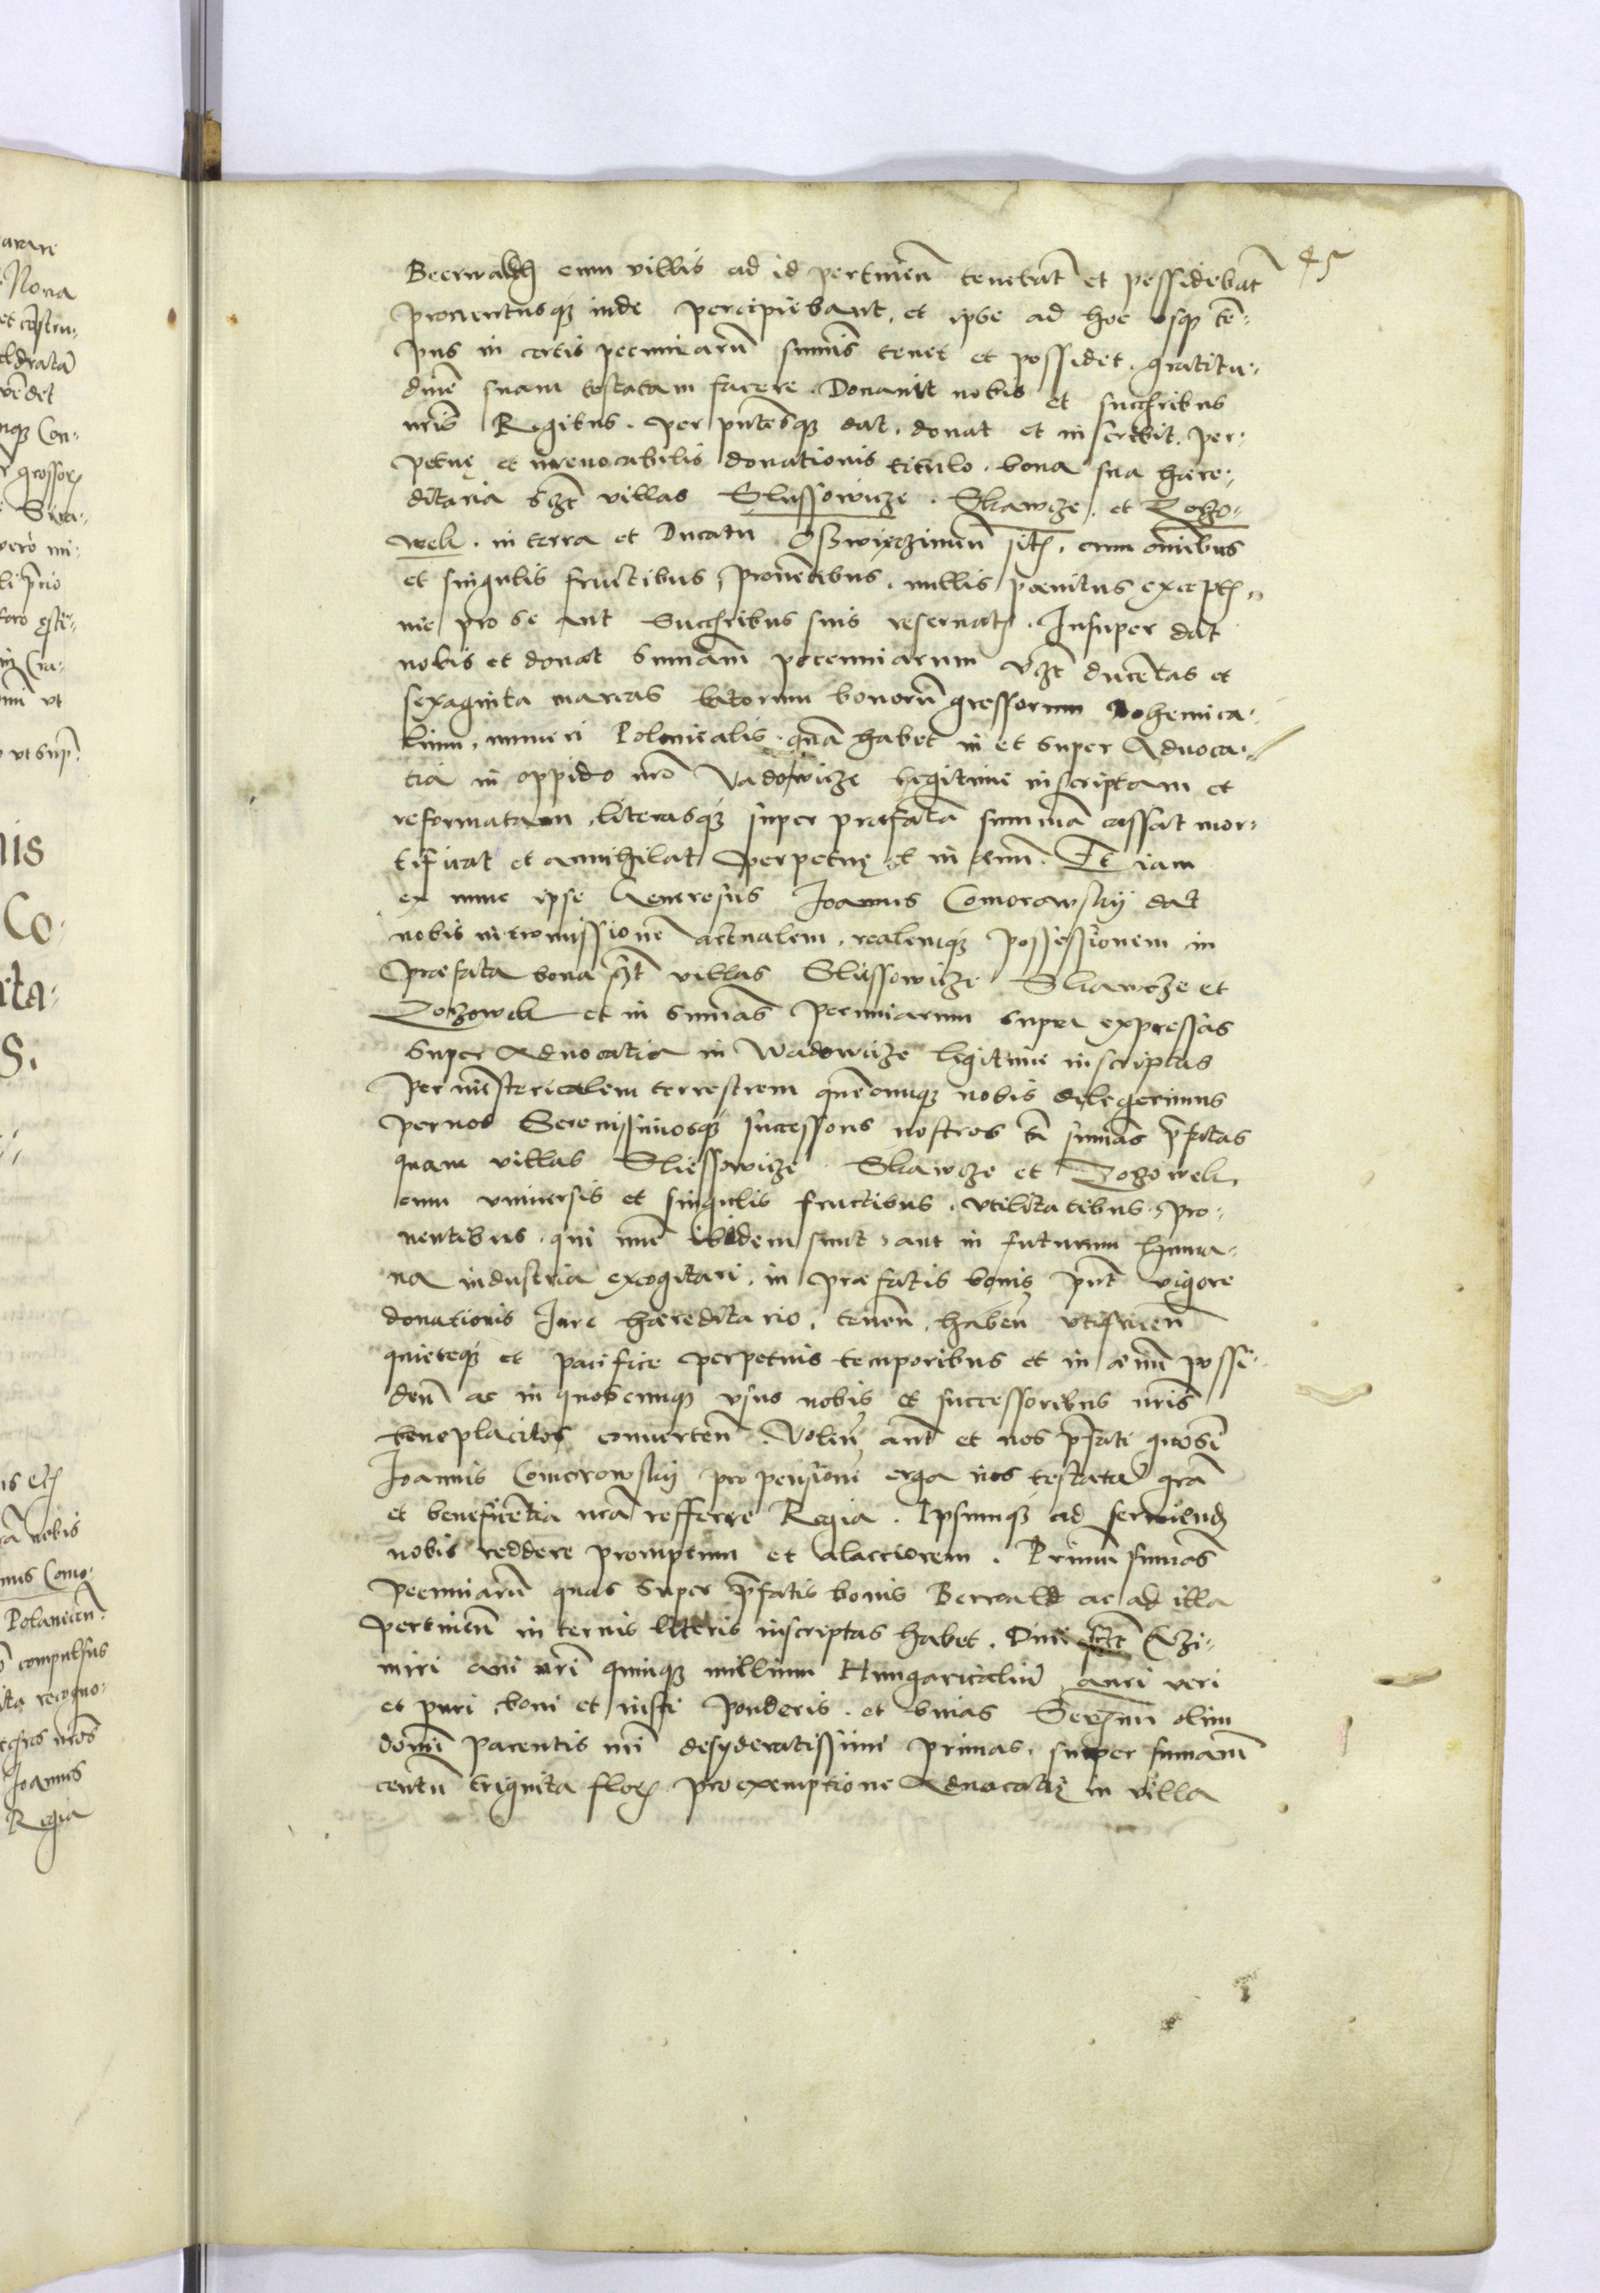 45
Beerwaldh cum villis ad id pertinen̄ tenebāt et possidebāt
prouentusqȝ inde percipiebant, et ipse ad hoc vsqȝ tē-
pus in certis pecuniarū sum̄is tenet et possidet. gratitu-
dinē suam testatam facere. Donauit nobis et succ̄ribus
nr̄is Regibus. per pn̄tesqȝ dat, donat et inscribit, per-
petuę et irreuocabilis donationis titulo. bona sua hære-
ditaria vȝt villas Slussowicze. Skawcze, et Zoȝo-
wek. in terra et Ducatu Oswieczimen̄ sit̄. cum om̄ibus
et singulis fructibus, prouētibus, nullis pænitus except̄.
nie pro se aut Succ̄ribus suis reseruat̄. Insuper dat
nobis et donat Summam pecuniarum vȝt ducētas et
sexaginta marcas latorum bonorū grossorum Bohemica-
lium, numeri Polonicalis. quā habet in et super Aduoca-
tia in oppido nr̄o Vadowicze legitime inscriptam et
reformatam, literasqȝ super præfatā summā cassat mor-
tificat et annihilat perpetuę et in æuū. Et iam
ex nunc ipse Generosus Joannes Comorowskij dat
nobis intromissionē actualem, realemqȝ possessionem in
præfata bona vȝt villas Slussowicze Skawcze et
Zoȝowek et in sum̄as pecuniarum supra expressas
super Aduocatia in Wadowicze legitime inscriptas
per ministerialem terrestrem quēcumqȝ nobis delegerimus
per nos Serenissimosqȝ successores nostros tā sum̄as p̄fatas
quam villas Sliessowicze Skawcze et Zoȝowek,
cum vniuersis et singulis fructibus, vtilitatibus, pro-
uentibus, qui nūc ibidem sunt, aut in futurum huma-
na industria excogitari, in præfatis bonis pn̄t vigore
donationis Jure hæreditario, tenen̄, haben̄ vtifruen̄
quieteqȝ et pacifice perpetuis temporibus et in æuū possi-
den̄ ac in quoscumqȝ vsus nobis et successoribus nr̄is
beneplacitos conuerten̄. Volen̄ aut̄ et nos p̄fati gn̄osi
Joannis Comorowskij propensionē erga nos testatā grā
et beneficētia nrā refferre Regia. Ipsumqȝ ad seruiend̄
nobis reddere promptum et alacriorem. Primū sum̄as
pecuniarū quas super p̄fatis bonis Berwald ac ad illa
pertinen̄ in ternis literis inscriptas habet. Diui Cazi-
miri aui nr̄i quinqȝ millium Hungaricaliū auri veri
et puri, boni et iusti ponderis. et binas Serēmi olim
domini Parentis nr̄i desyderatissimi primas, super sum̄am
centū triginta flor̄ pro exemptione Aduocatię in villa